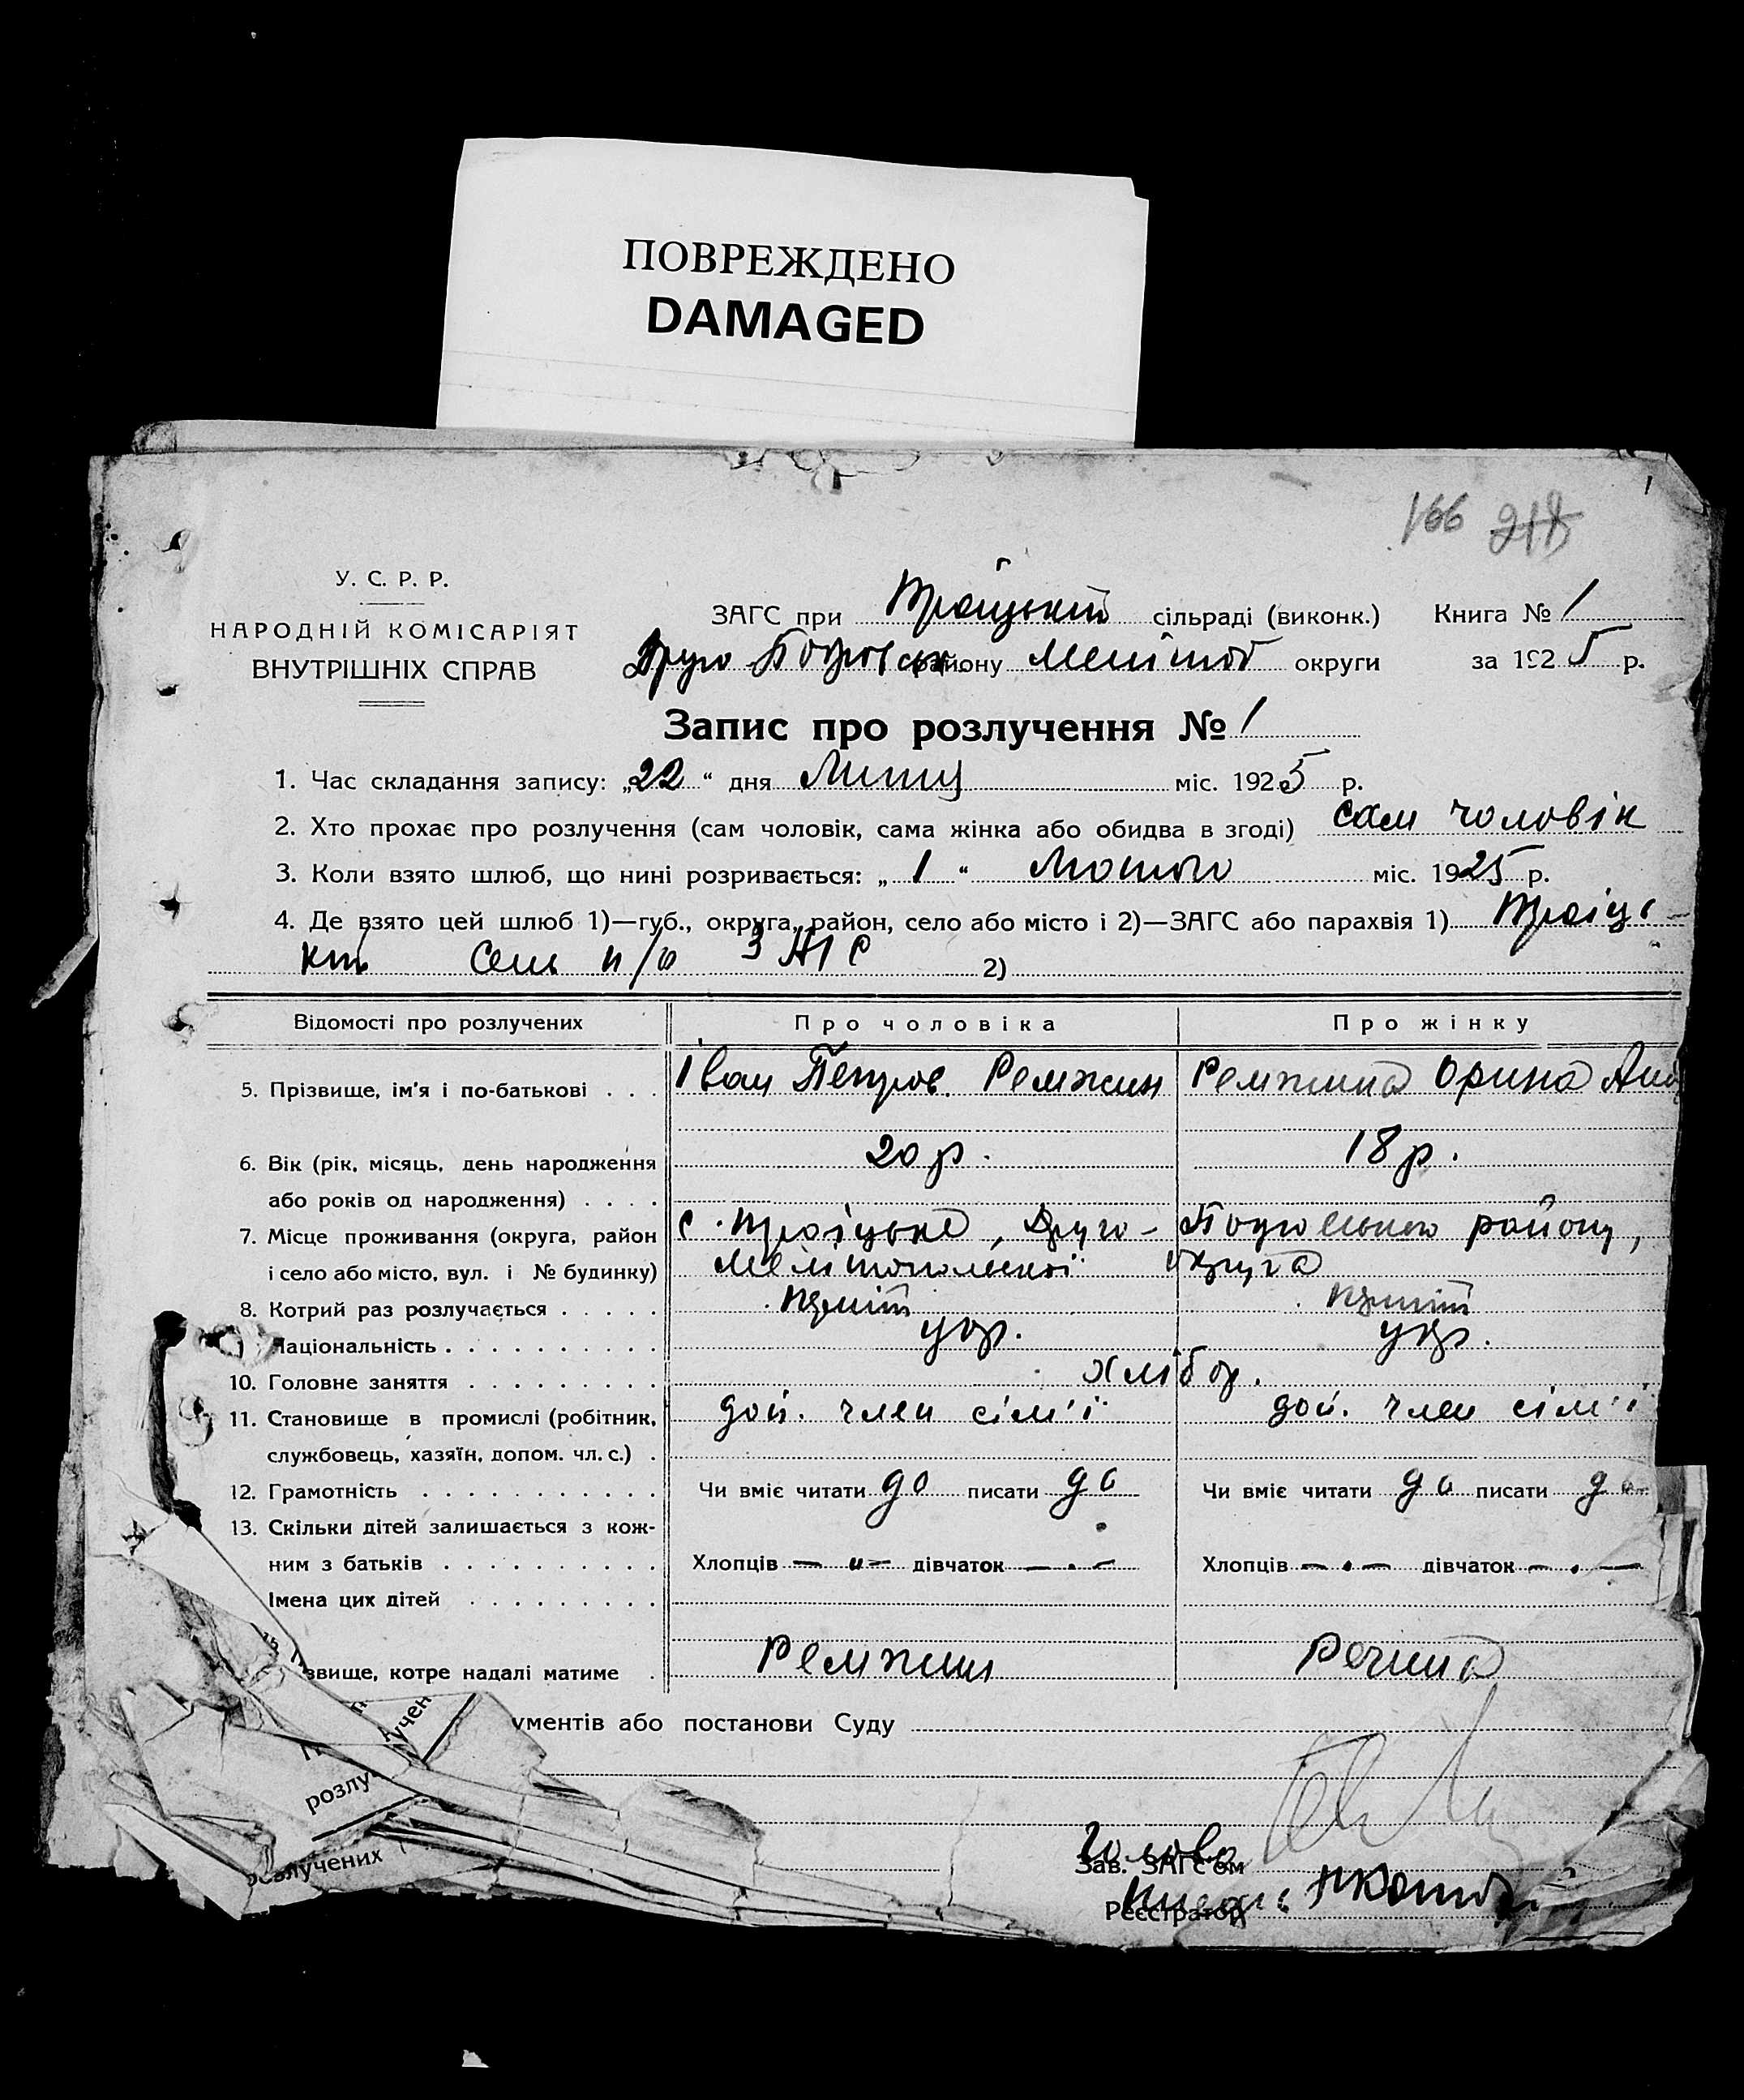 ПОВРЕЖДЕНО
DAMAGED
166 218
У. С. Р. Р.
НАРОДНІЙ КОМІСАРІЯТ
ВНУТРІШНІХ СПРАВ
ЗАГС при Троїцькій сільраді (виконк.) Книга № 1
Друго району Меліттоб округи за 1925 р.
Запис про розлучення № 1
1. Час складання запису: „22“ дня міс. 1925 р.
2. Хто прохає про розлучення (сам чоловік, сама жінка або обидва в згоді) сам чоловік
3. Коли взято шлюб, що нині розривається: „1“ Лютого міс. 1925 р.
4. Де взято цей шлюб 1)—губ., округа, район, село або місто і 2)—ЗАГС або парахвія 1) Троіць-
кій ЗАГС 2)
Відомості про розлучених Про чоловіка Про жінку
5. Прізвище, ім'я і по-батькові . . . Іван Петров. Ремжин Ремжина Орина
6. Вік (рік, місяць, день народження 20 р. 18 р.
або років од народження) . . . .
7. Місце проживання (округа, район с. Троіцьке, Друго- району,
і село або місто, вул. і № будинку) Мелітопольскої округа
8. Котрий раз розлучається . . . . .
Національність . . . . . . . . . . укр. укр.
10. Головне заняття . . . . . . . . . хлібор.
11. Становище в промислі (робітник, доп. член сім'ї доп. член сім'ї
службовець, хазяїн, допом. чл. с.) .
12. Грамотність . . . . . . . . . . . Чи вміє читати да писати да Чи вміє читати да писати да
13. Скільки дітей залишається з кож-
ним з батьків . . . . . . . . . . Хлопців — „ — дівчаток — . — Хлопців — . — дівчаток — . —
Імена цих дітей . . . . . . . . .
звище, котре надалі матиме . Ремжин Речина
ументів або постанови Суду
учен
розлу
Голова
Зав. ЗАГС'ом
розлучених
Реєстратор